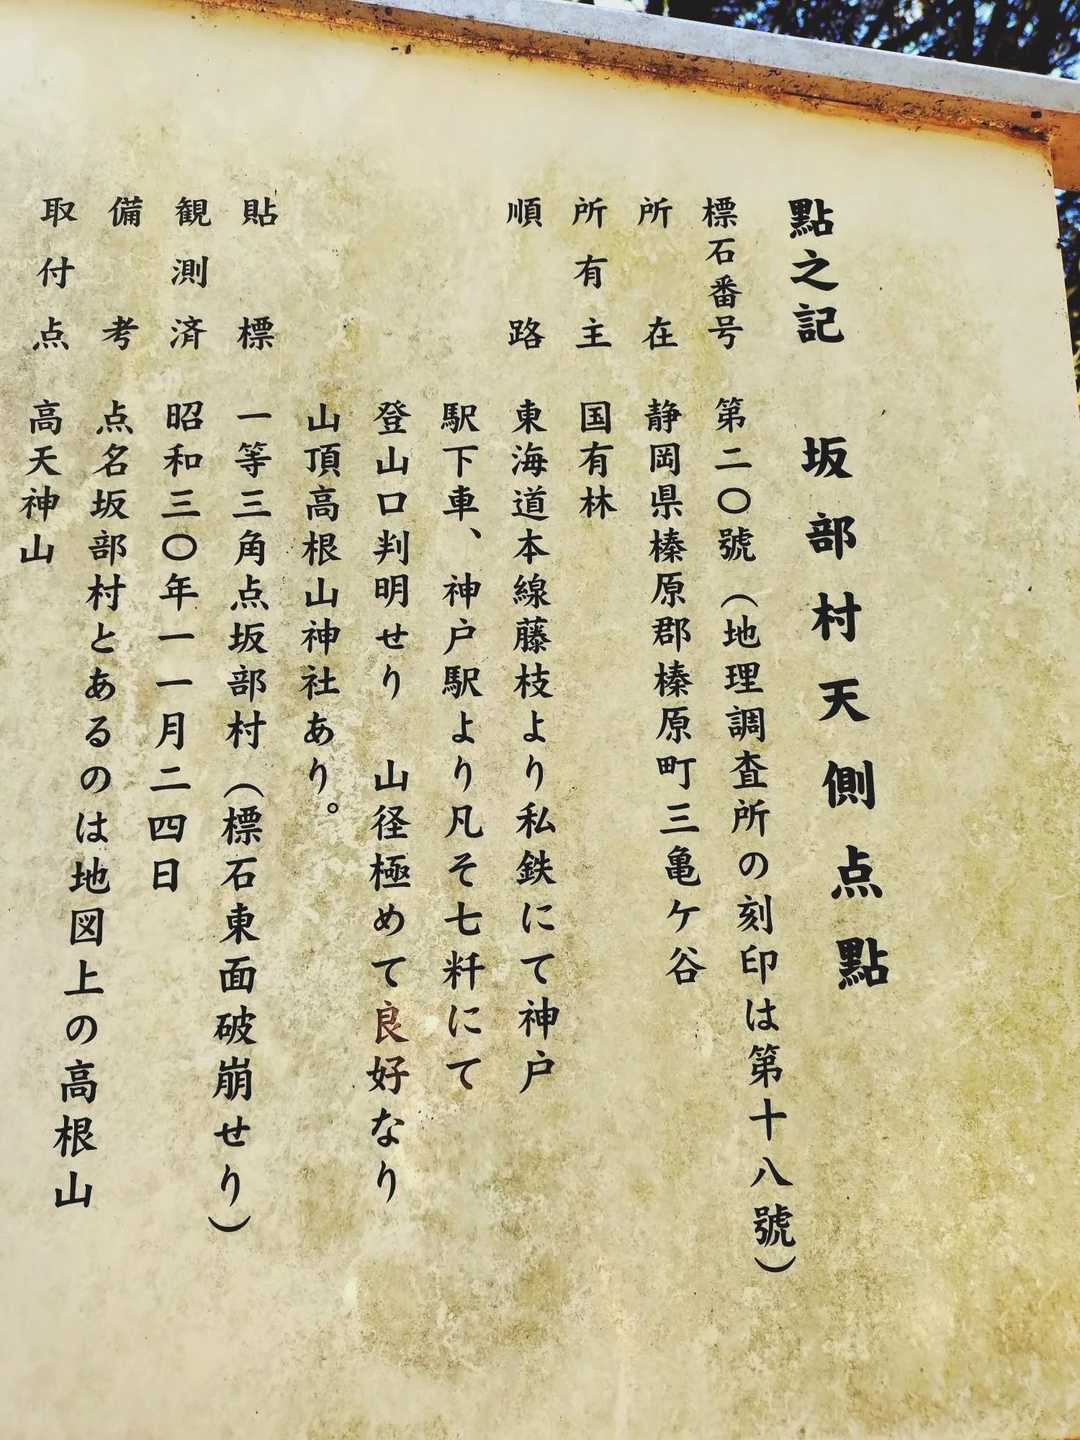 點之記　坂部村天側点點
標石番号　第二〇號（地理調査所の刻印は第十八號）
所在　静岡県榛原郡榛原町三亀ケ谷
所有主　国有林
順路　東海道本線藤枝より私鉄にて神戸
駅下車、神戸駅より凡そ七粁にて
登山口判明せり　山径極めて良好なり
山頂高根山神社あり。
貼標　一等三角点坂部村（標石東面破崩せり）
観測済　昭和三〇年一一月二四日
備考　点名坂部村とあるのは地図上の高根山
取付点　高天神山